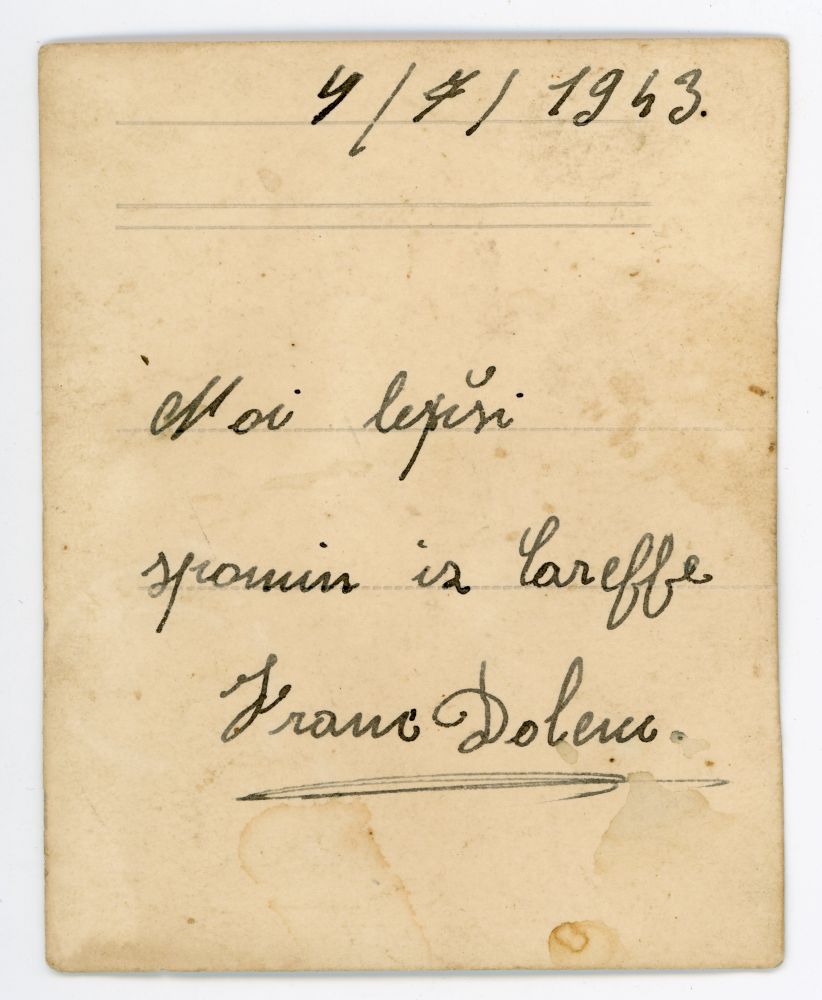 4/7/1943.
Noi lepši
spomin iz Careffe
Franc Dolenc.